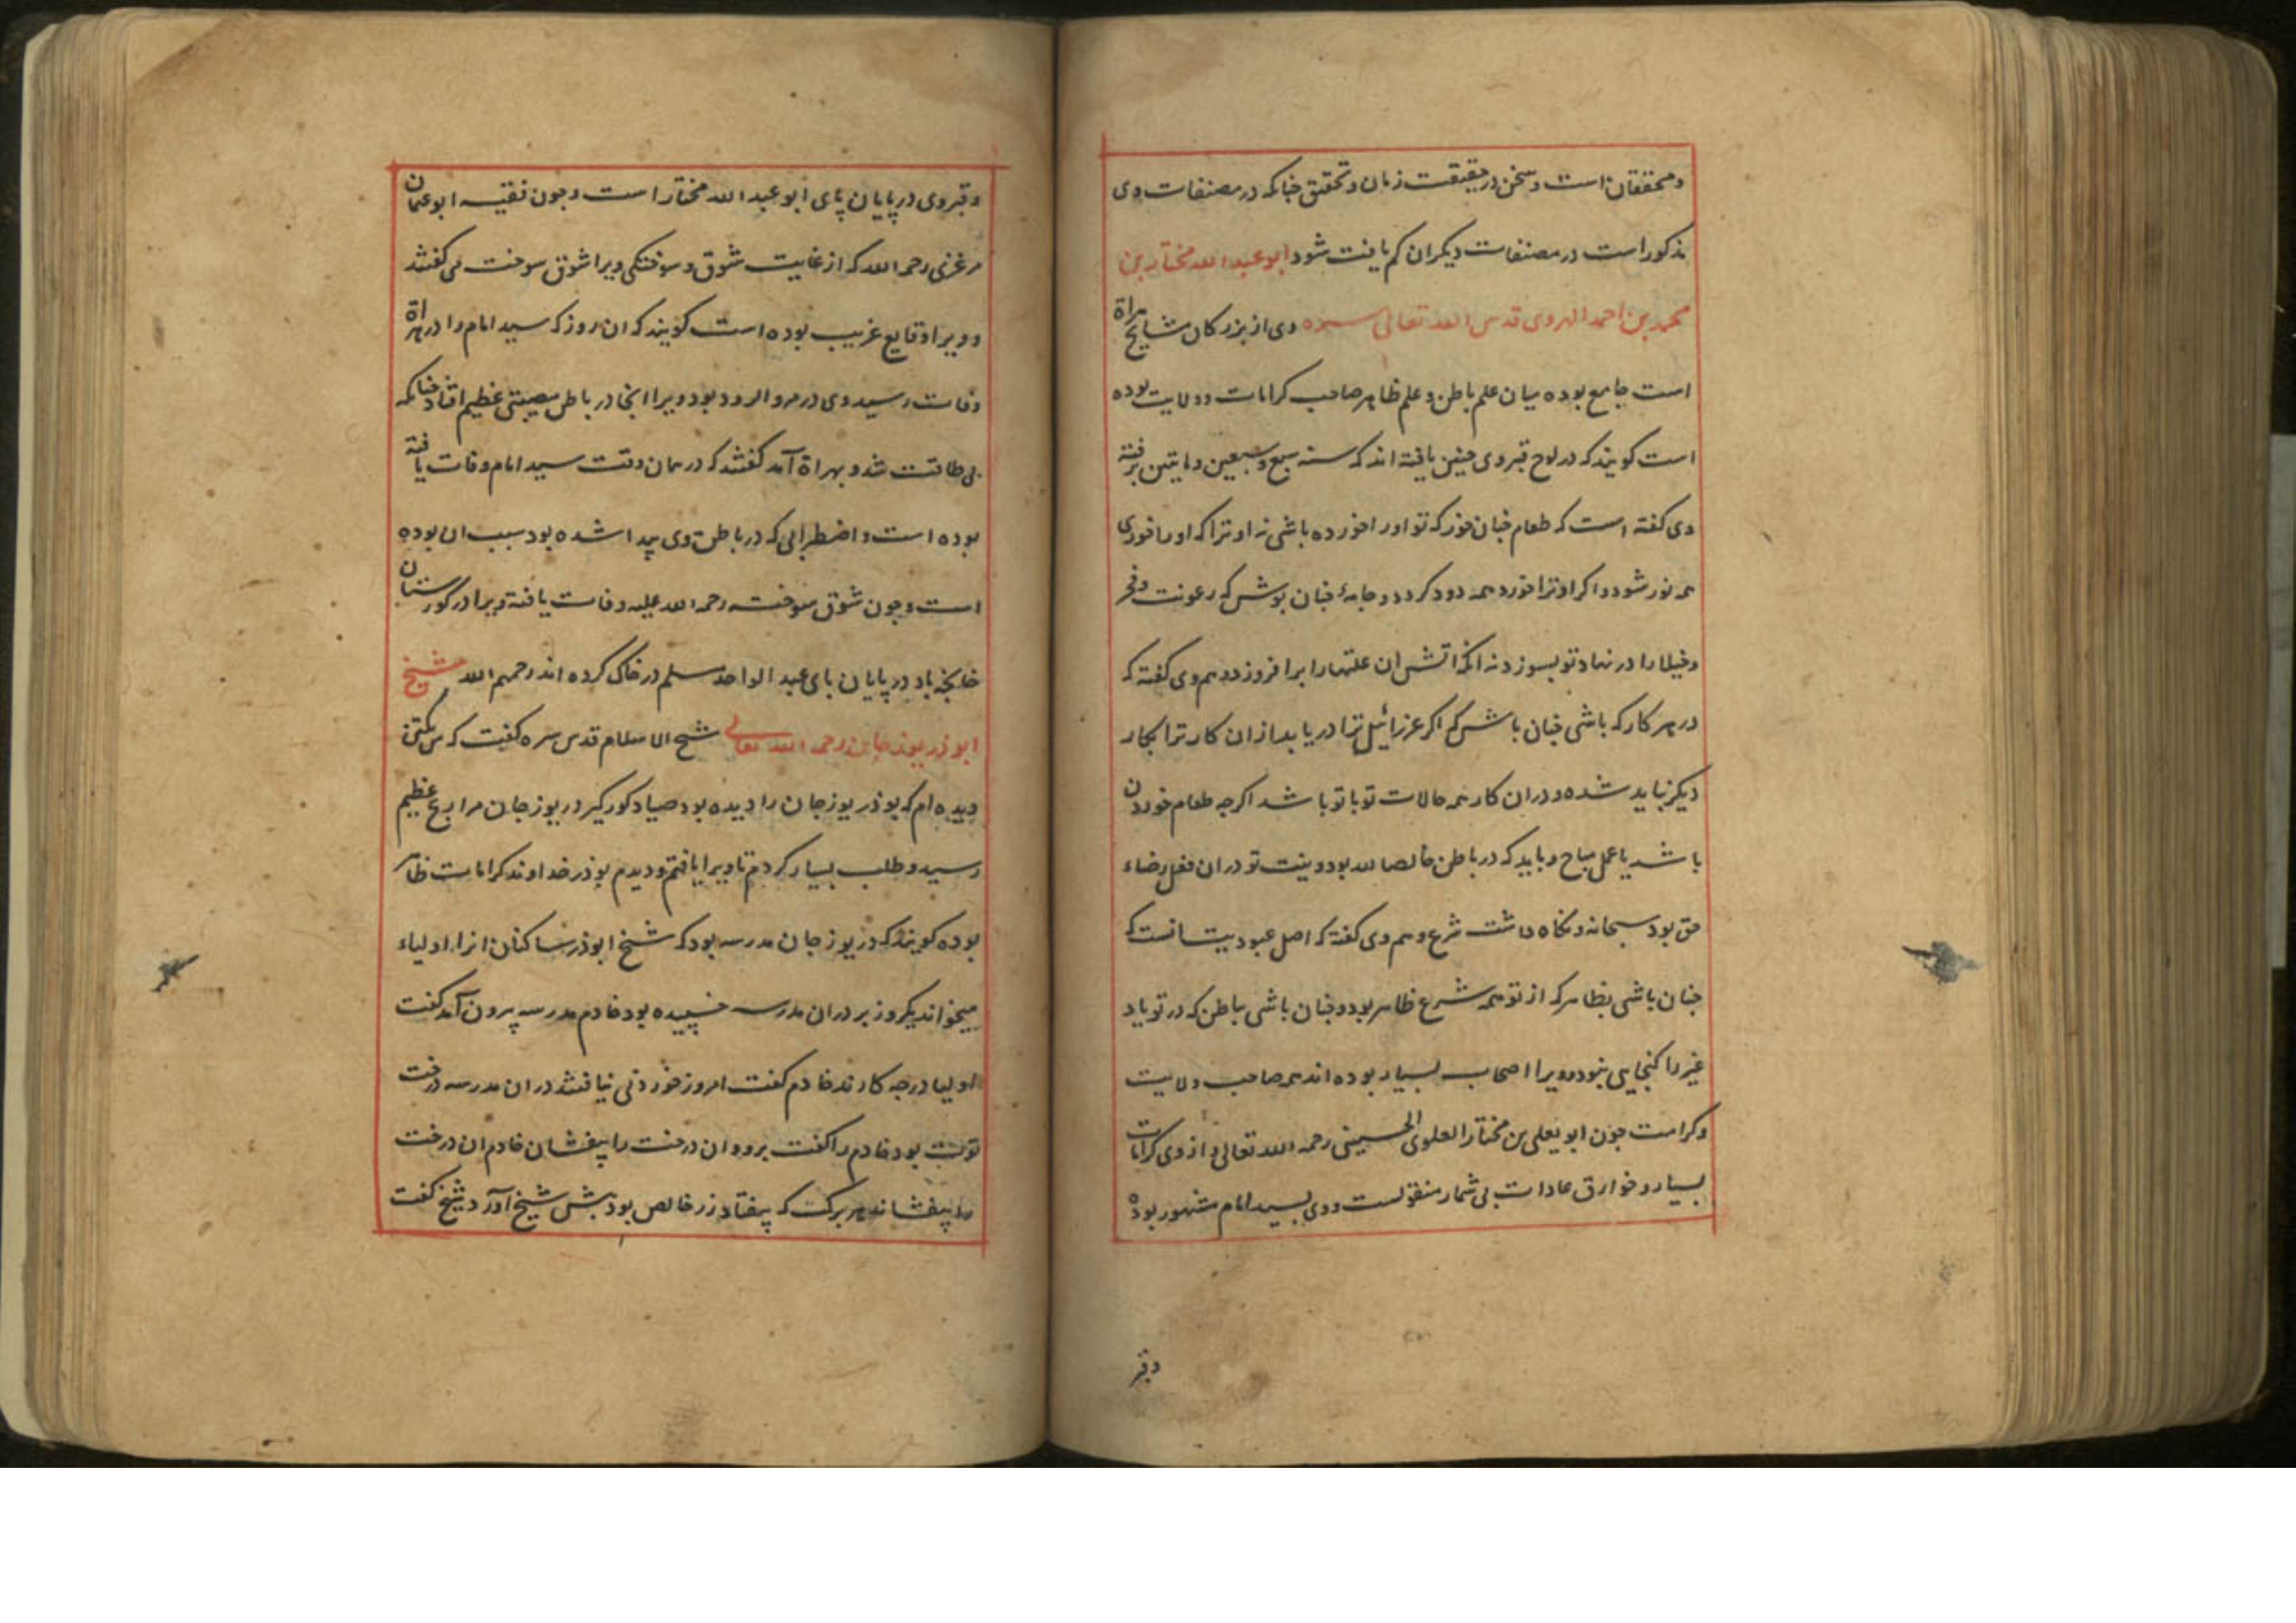 و محققان است و سخن در حقیقت زمان و تحقیق چنانکه در مصنفات وی
مذکور است در مصنفات دیکران کم یافت شود ابو عبد الله مختار بن
محمد بن احمد الهروی قدس الله تعالی سره وی از بزرکان مشایخ هراة
است جامع بوده میان علم باطن و علم ظاهر صاحب کرامات و ولایت بوده
است کویند که در لوح قبر وی چنین یافته اند که سنه سبع و سبعین و مایتین برفته
وی کفته است که طعام چنان خور که تو او را خورده باشی نه او ترا که او را خوری
همه نور شود و اکر او ترا خورد همه دود کردد و جامهٔ چنان پوش که رعونت و فخر
و خیلا را در نهاد تو بسوزد نه انکه اتش ان علتها را برافروزد و هم وی کفته که
در هر کار که باشی چنان باش که اکر عزرائیل ترا دریابد از ان کار ترا بکار
دیکر نباید شد و در ان کار همه حالات تو با تو باشد اکرچه طعام خوردن
باشد یا عمل مباح و باید که در باطن خالصا لله بود و نیت تو در ان فعل رضاء
حق بود سبحانه و نکاه داشت شرع و هم وی کفته که اصل عبودیت انست که
چنان باشی بظاهر که از تو همه شرع ظاهر بود و چنان باشی بباطن که در تو یاد
غیر را کنجایی نبود و ویرا اصحاب بسیار بوده اند همه صاحب ولایت
و کرامت چون ابو یعلی بن مختار العلوی الحسینی رحمه الله تعالی و از وی کرامات
بسیار و خوارق عادات بی شمار منقولست و وی بسید امام مشهور بوده
و قبر
و قبر وی در پایان پای ابو عبد الله مختار است و چون فقیه ابو عثمان
مرغزی رحمه الله که از غایت شوق و سوختکی ویرا شوق سوخت می کفتند
و ویرا وقایع غریب بوده است کویند که ان روز که سید امام را در هراة
وفات رسید وی در مرو الرود بود ویرا انجا در باطن مصیبتی عظیم افتاد چنانکه
بی طاقت شد و بهراة آمد کفتند که در همان وقت سید امام وفات یافته
بوده است و اضطرابی که در باطن وی پیدا شده بود سبب ان بوده
است و چون شوق سوخته رحمه الله علیه وفات یافته ویرا در کورستان
خانچه باد در پایان پای عبد الواحد مسلم در خاک کرده اند رحمهم الله شیخ
ابو ذر بوزجانی رحمه الله تعالی شیخ الاسلام قدس سره کفت که من یکتن
دیده ام که بوذر بوزجان را دیده بود صیاد کورکیر در بوزجان مرا رنج عظیم
رسید و طلب بسیار کردم تا ویرا یافتم و دیدم بوذر خداوند کرامات ظاهر
بوده کویند که در بوزجان مدرسه بود که شیخ ابوذر ساکنان انرا اولیاء
میخواند یکروز بر در ان مدرسه خسپیده بود خادم مدرسه بیرون آمد کفت
اولیا در چه کارند خادم کفت امروز خوردنی نیافتند در ان مدرسه درخت
توت بود خادم را کفت برو و ان درخت را بیفشان خادم ان درخت
را بیفشاند هر برک که بیفتاد زر خالص بود پیش شیخ آورد شیخ کفت